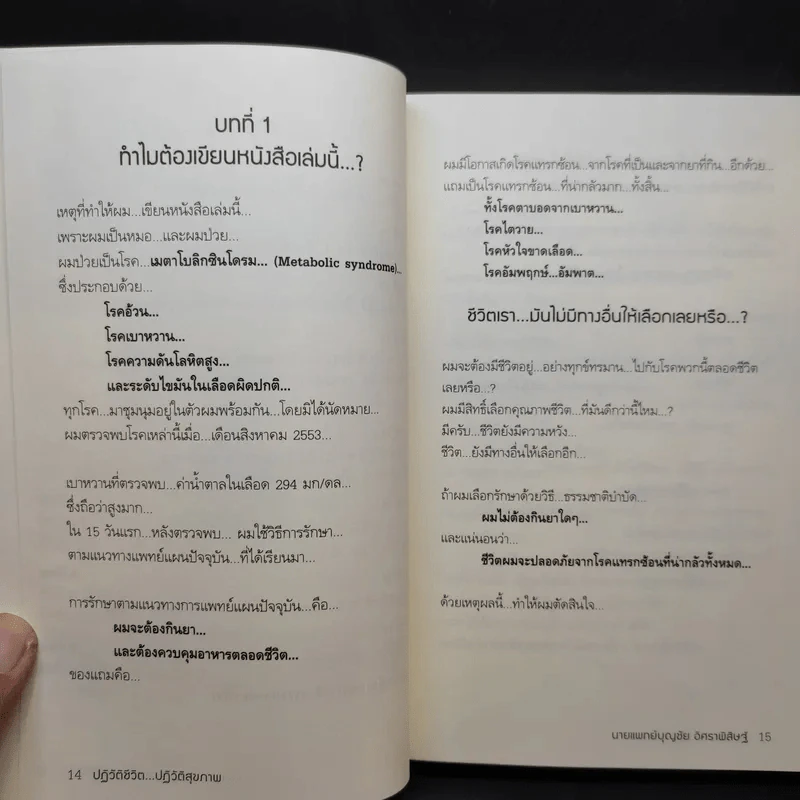 บทที่ 1
ทำไมต้องเขียนหนังสือเล่มนี้...?
เหตุที่ทำให้ผม...เขียนหนังสือเล่มนี้...
เพราะผมเป็นหมอ...และผมป่วย...
ผมป่วยเป็นโรค...เมตาโบลิกซินโดรม... (Metabolic syndrome)...
ซึ่งประกอบด้วย...
โรคอ้วน...
โรคเบาหวาน...
โรคความดันโลหิตสูง...
และระดับไขมันในเลือดผิดปกติ...
ทุกโรค...มาชุมนุมอยู่ในตัวผมพร้อมกัน...โดยมิได้นัดหมาย...
ผมตรวจพบโรคเหล่านี้เมื่อ...เดือนสิงหาคม 2553...
เบาหวานที่ตรวจพบ...ค่าน้ำตาลในเลือด 294 มก/ดล...
ซึ่งถือว่าสูงมาก...
ใน 15 วันแรก...หลังตรวจพบ... ผมใช้วิธีการรักษา...
ตามแนวทางแพทย์แผนปัจจุบัน...ที่ได้เรียนมา...
การรักษาตามแนวทางการแพทย์แผนปัจจุบัน...คือ...
ผมจะต้องกินยา...
และต้องควบคุมอาหารตลอดชีวิต...
ของแถมคือ...
14 ปฏิวัติชีวิต...ปฏิวัติสุขภาพ
ผมมีโอกาสเกิดโรคแทรกซ้อน...จากโรคที่เป็นและจากยาที่กิน...อีกด้วย...
แถมเป็นโรคแทรกซ้อน...ที่น่ากลัวมาก...ทั้งสิ้น...
ทั้งโรคตาบอดจากเบาหวาน...
โรคไตวาย...
โรคหัวใจขาดเลือด...
โรคอัมพฤกษ์...อัมพาต...
ชีวิตเรา...มันไม่มีทางอื่นให้เลือกเลยหรือ...?
ผมจะต้องมีชีวิตอยู่...อย่างทุกข์ทรมาน...ไปกับโรคพวกนี้ตลอดชีวิต
เลยหรือ...?
ผมมีสิทธิ์เลือกคุณภาพชีวิต...ที่มันดีกว่านี้ไหม...?
มีครับ...ชีวิตยังมีความหวัง...
ชีวิต...ยังมีทางอื่นให้เลือกอีก...
ถ้าผมเลือกรักษาด้วยวิธี...ธรรมชาติบำบัด...
ผมไม่ต้องกินยาใดๆ...
และแน่นอนว่า...
ชีวิตผมจะปลอดภัยจากโรคแทรกซ้อนที่น่ากลัวทั้งหมด...
ด้วยเหตุผลนี้...ทำให้ผมตัดสินใจ...
นายแพทย์บุญชัย อิศราพิสิษฐ์ 15